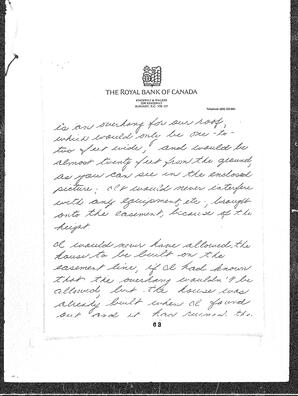 THE ROYAL BANK OF CANADA
is an overhang for our roof,
which would only be one-to-
two feet wide, and would be
almost twenty feet from the ground,
as you can see in the enclosed
picture. It would never interfere
with any equipment, etc., brought
onto the easement, because of the
height.
I would never have allowed the
house to be built on the
easement line, if I had known
that the overhang wouldn't be
allowed, but the house was
already built when I found
out and it has ruined the